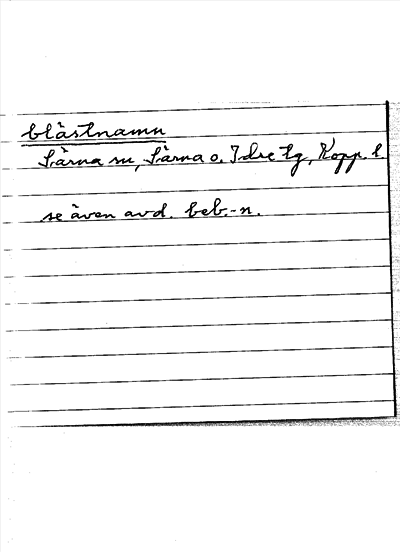 blåstnamn
Särna sn, Särna o. Idre tg, Kopp. l.
se även avd. beb.-n.